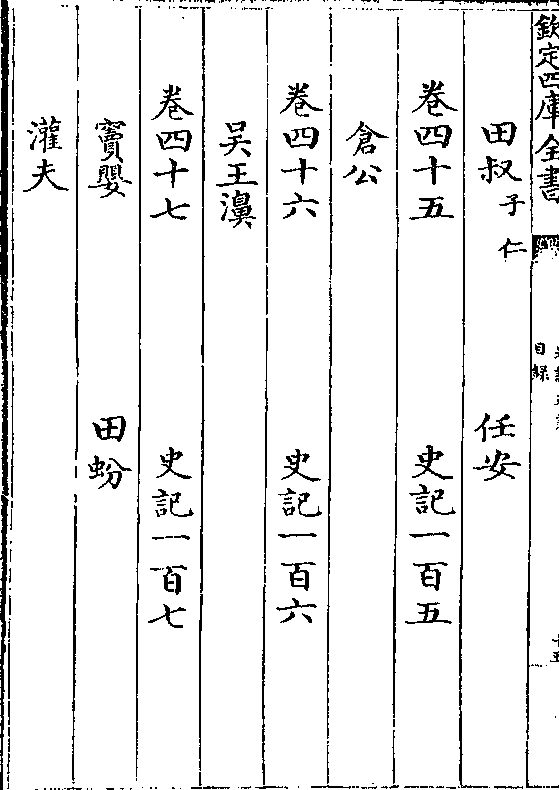 欽定四庫全書
目録
田叔 子仁 任安
卷四十五 史記一百五
倉公
卷四十六 史記一百六
吳王濞
卷四十七 史記一百七
竇嬰 田蚡
灌夫